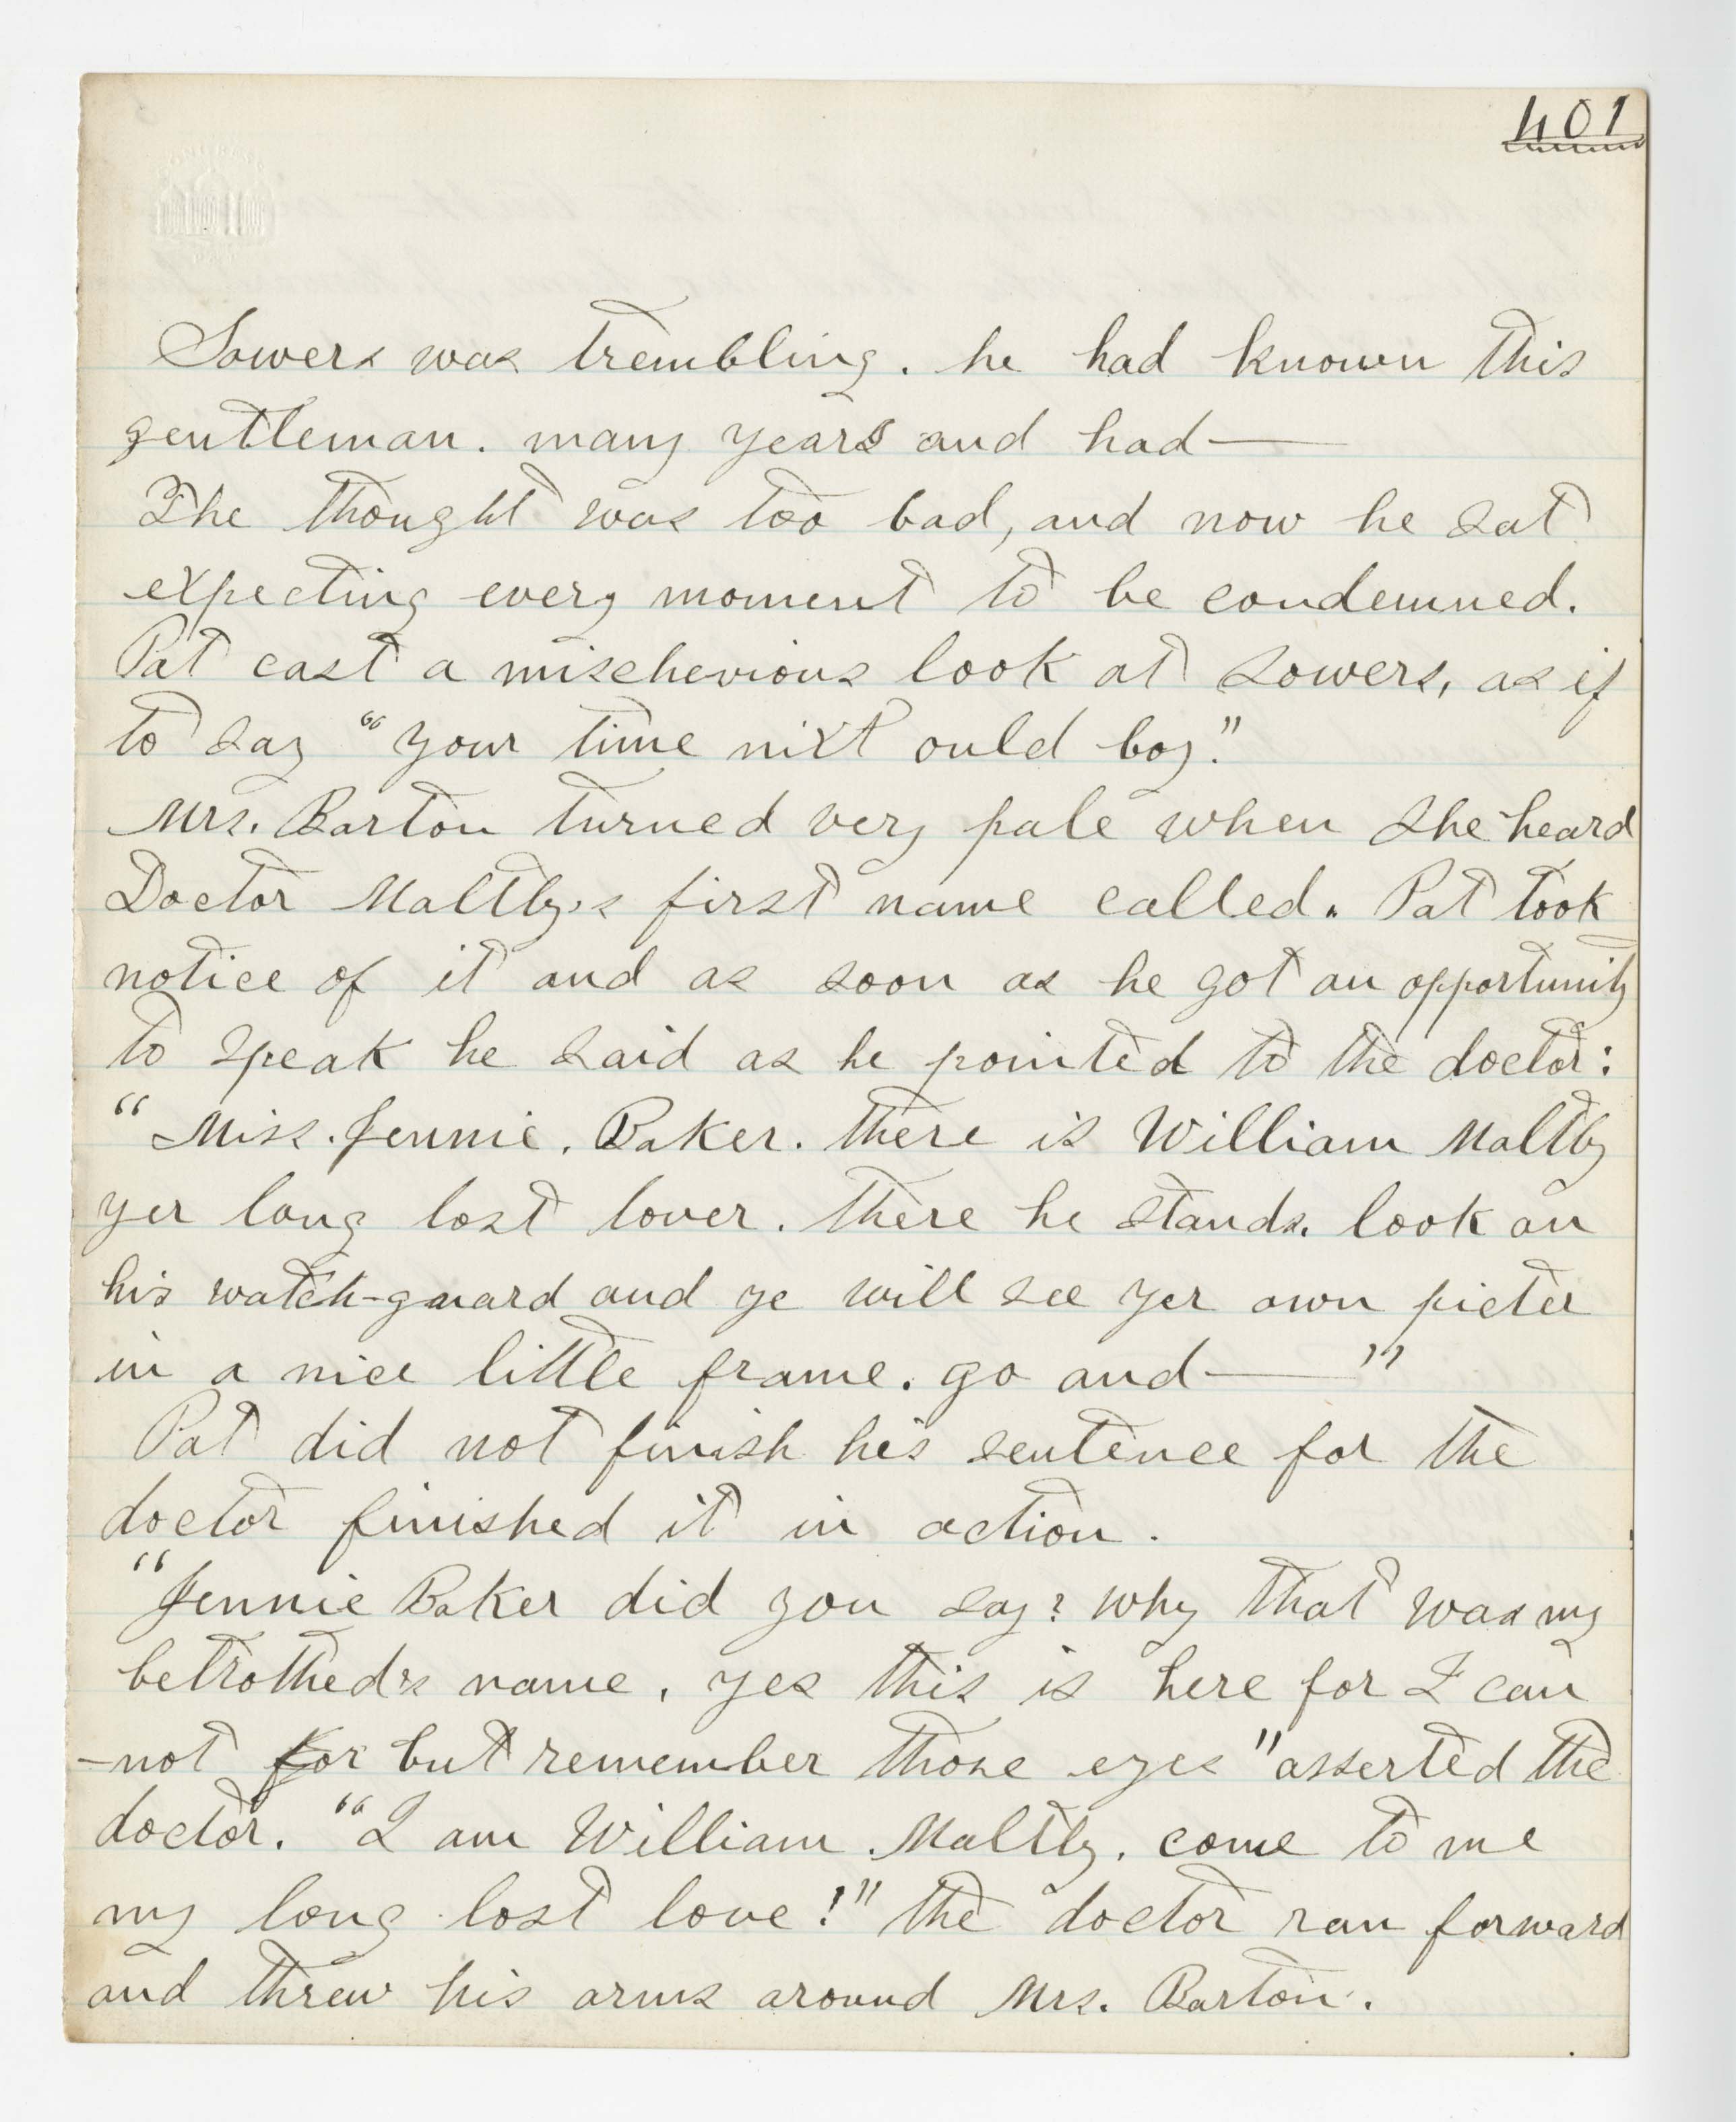 401
Sowers was trembling. he had known this
gentleman. many years and had—
The thought was too bad, and now he sat
expecting every moment to be condemned.
Pat cast a mischevious look at Sowers, as if
to say "your time nixt ould boy."
Mrs. Barton turned very pale when she heard
Doctor Maltby's first name called. Pat took
notice of it and as soon as he got an opportunity
to speak he said as he pointed to the doctor:
"Miss. Jennie. Baker. there is William Maltby
yer long lost lover. there he stands. look on
his watch-guard and ye will see yer own picter
in a nice little frame. go and—"
Pat did not finish his sentence for the
doctor finished it in action.
"Jennie Baker did you say? why that was my
betrothed's name, yes this is here for I can
-not for but remember those eyes" asserted the
doctor. "I am William Maltby. come to me
my long lost love!" the doctor ran forward
and threw his arms around Mrs. Barton.